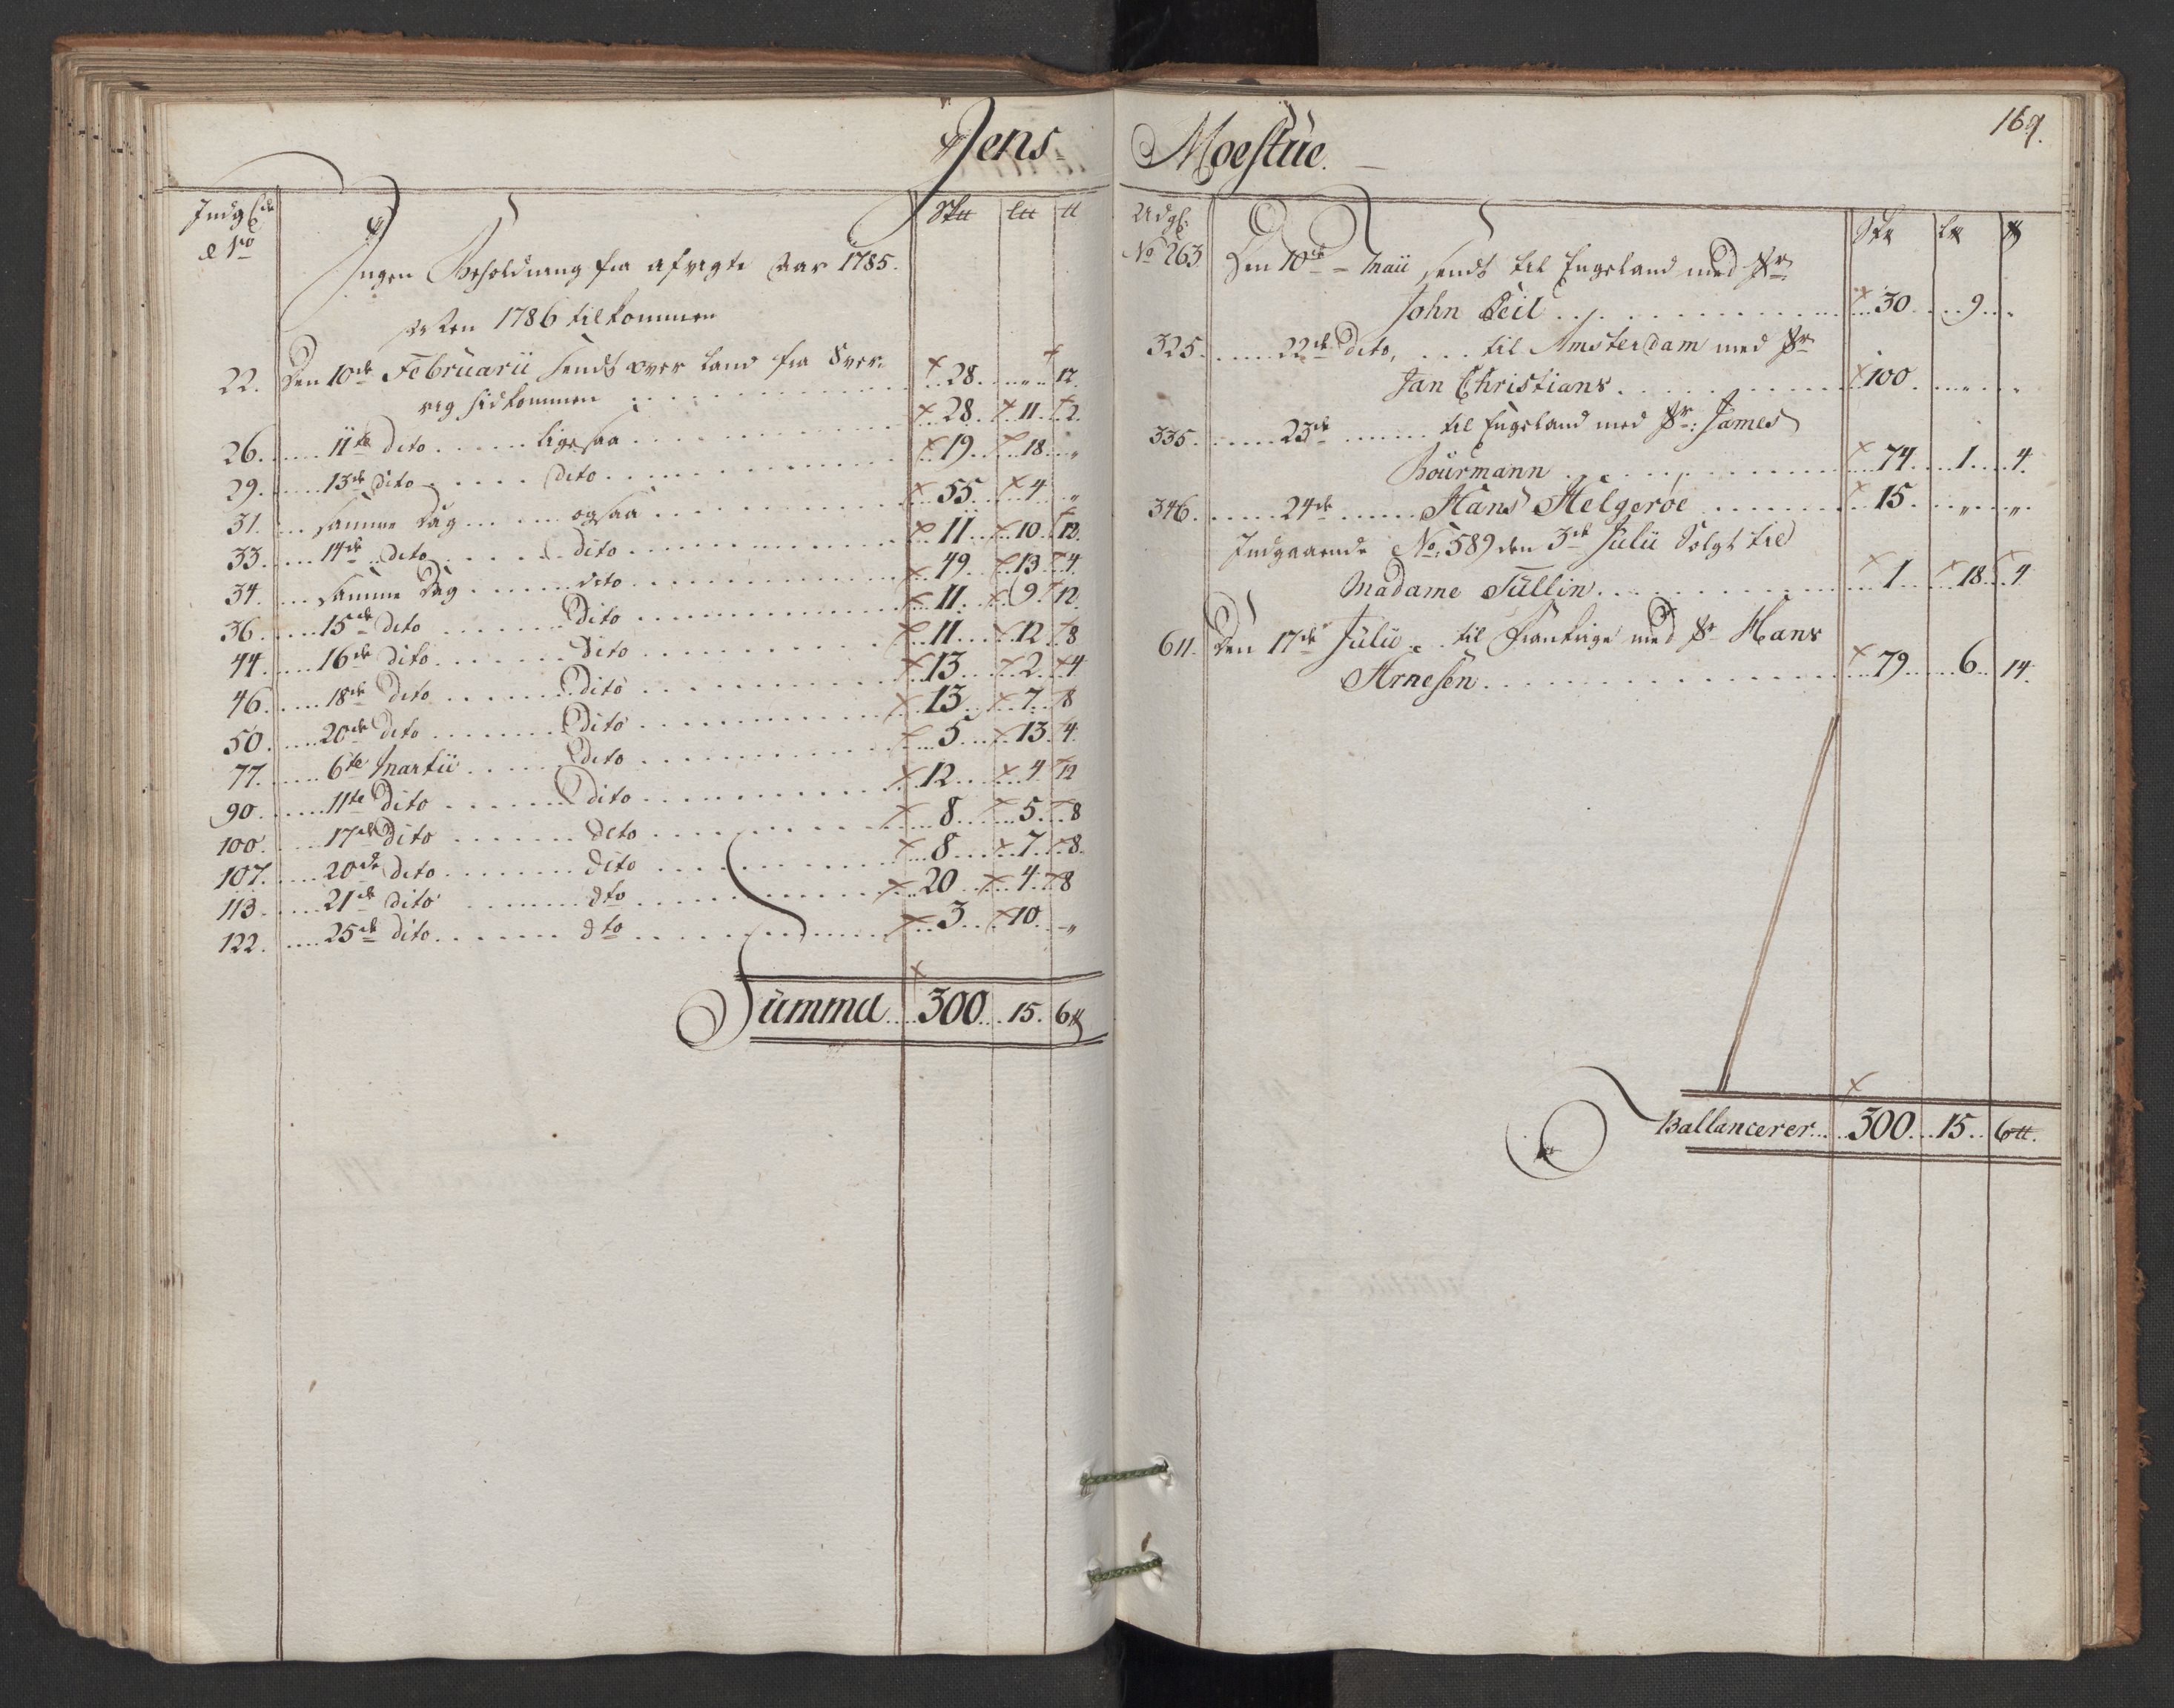 Jens
Indg:
No
Sk℔ L℔ ℔
Ingen Beholdning fra afvigte Aar 1785.
1786 tilkommen
22. Den 10de Februarii sendt over Land fra Sver-
rig hidkommen 28 " 12
26. 11te dito ligesaa 28 11 2
29. 13de dito dito 19 18 "
31. samme Dag ogsaa 55 4 "
33. 14de dito dito 11 10 12
34. samme Dag dito 49 13 4
36. 15de dito dito 11 9 12
44. 16de dito dito 11 12 8
46. 18de dito dito 13 2 4
50. 20de dito dito 13 7 8
77. 6te Martii dito 5 13 4
90. 11te dito dito 12 4 12
100. 17de dito dito 8 5 8
107. 20de dito dito 8 7 8
113. 21de dito dto 20 4 8
122. 25de dito dto 3 10 "
Summa 300 15 6℔
169.
Moestue.
Udg:
Sk℔ L℔ ℔
No 263 Den 10de Maii sendt til Engeland med Sr
John 30 9 "
325. 22de dito, til Amsterdam med Sr
Jan Christians 100 " "
335. 23de til Engeland med Sr: James
Bourmann 74 1 4
346. 24de Hans Helgerøe 15 " "
Indgaaende No: 589 den 3de Julii Solgt til
Madame Tullin 1 18 4
611. Den 17de Julii til Frankrige med Sr Hans
Arnesen 79 6 14
Ballancerer 300 15 6℔.